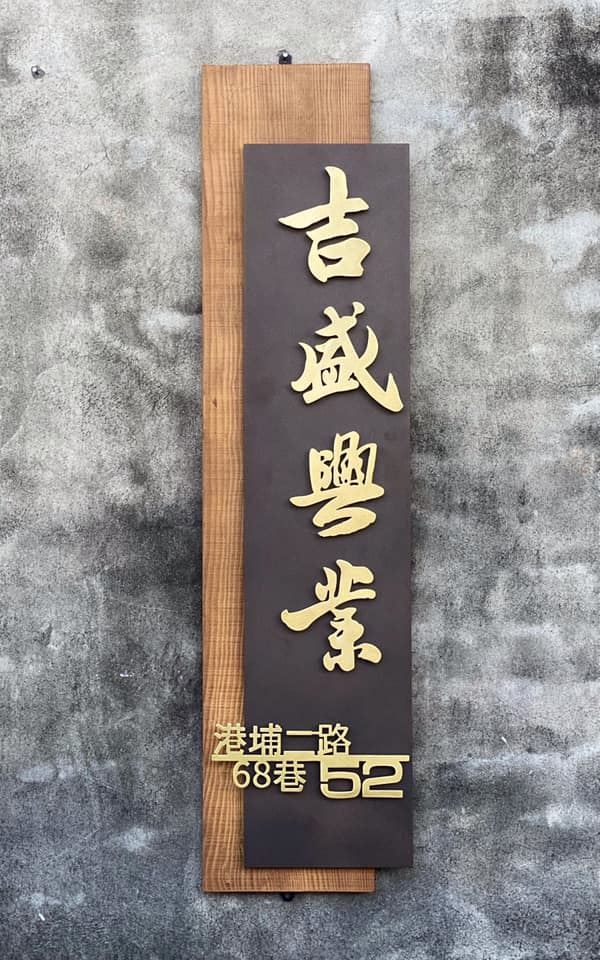 吉盛興業
港埔二路
68巷 52